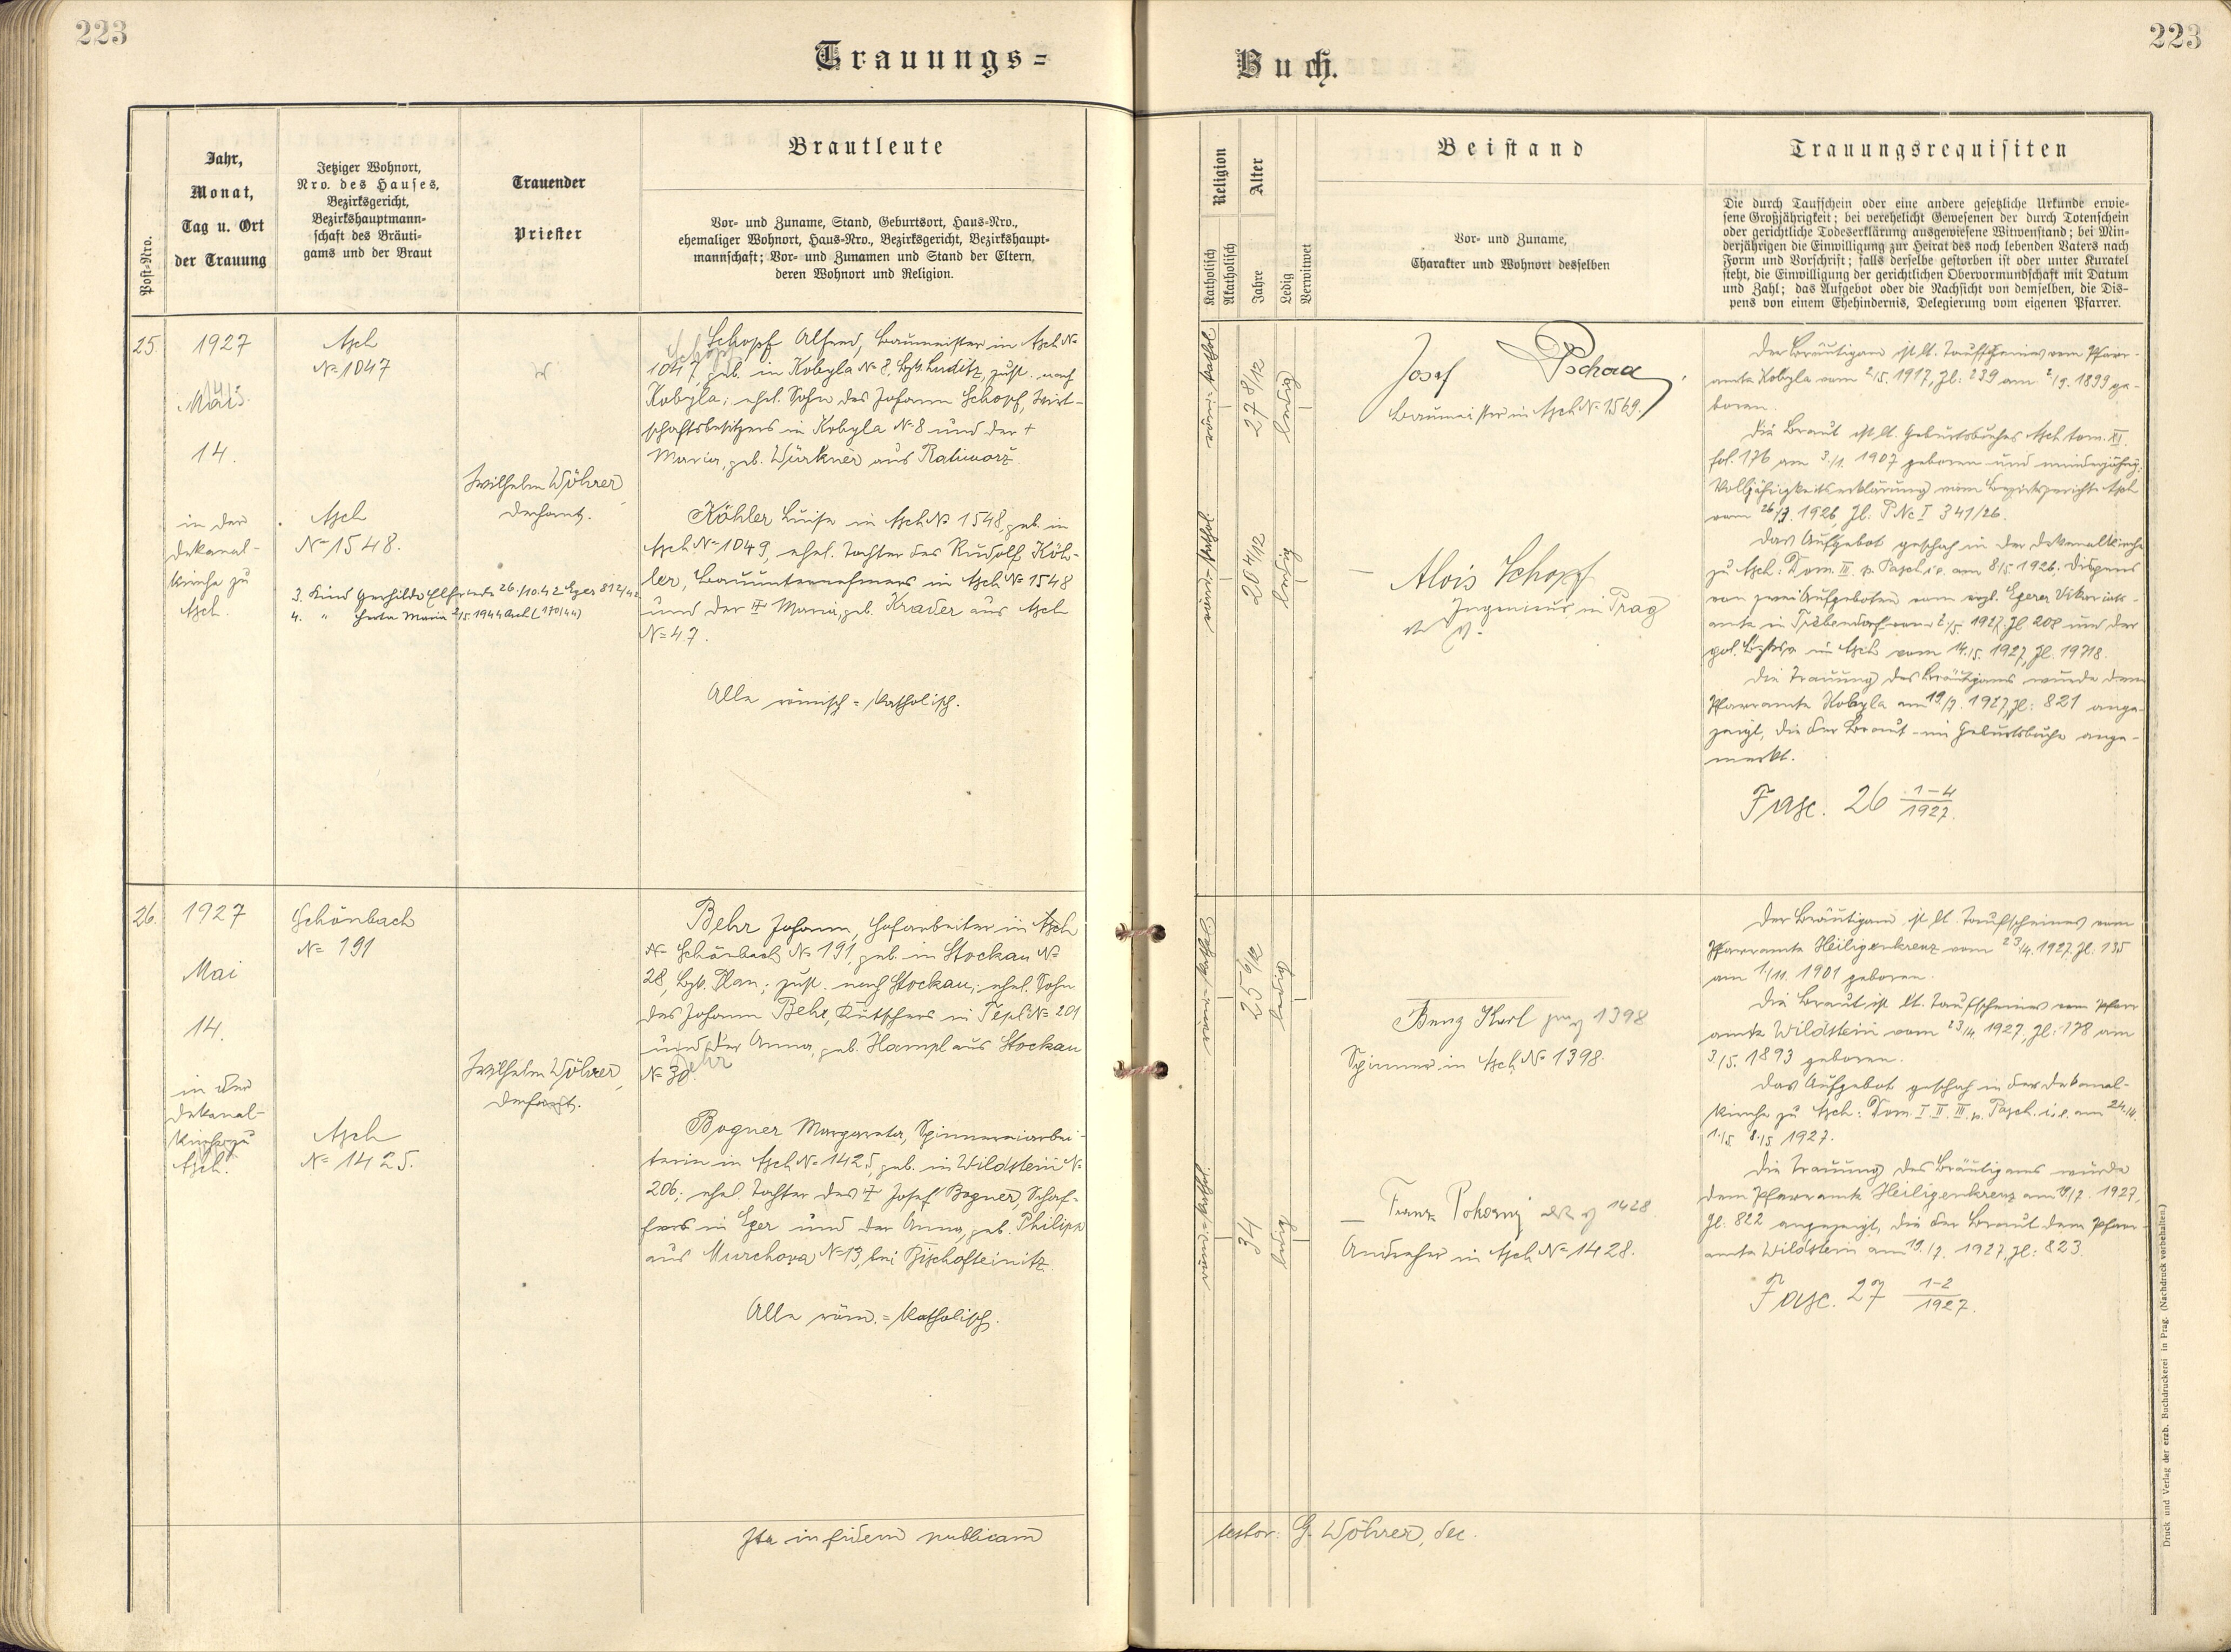 223
223
Trauungs=
Buch.
Post-Nro.
Jahr,
Monat,
Tag u. Ort
der Trauung
Jetziger Wohnort,
Nro. des Hauses,
Bezirksgericht,
Bezirkshauptmann-
schaft des Bräuti-
gams und der Braut
Trauender
Priester
Brautleute
Vor- und Zuname, Stand, Geburtsort, Haus-Nro.,
ehemaliger Wohnort, Haus-Nro., Bezirksgericht, Bezirkshaupt-
mannschaft; Vor- und Zunamen und Stand der Eltern,
deren Wohnort und Religion.
Religion
Katholisch
Akatholisch
Alter
Jahre
Ledig
Verwitwet
Beistand
Vor- und Zuname,
Charakter und Wohnort desselben
Trauungsrequisiten
Die durch Taufschein oder eine andere gesetzliche Urkunde erwie-
sene Großjährigkeit; bei verehelicht Gewesenen der durch Totenschein
oder gerichtliche Todeserklärung ausgewiesene Witwenstand; bei Min-
derjährigen die Einwilligung zur Heirat des noch lebenden Vaters nach
Form und Vorschrift; falls derselbe gestorben ist oder unter Kuratel
steht, die Einwilligung der gerichtlichen Obervormundschaft mit Datum
und Zahl; das Aufgebot oder die Nachsicht von demselben, die Dis-
pens von einem Ehehindernis, Delegierung vom eigenen Pfarrer.
25.
1927
Mai
14.
in der
Dekanal-
kirche zu
Asch.
Asch
No 1047
Asch
No 1548.
3. Kind Gerhilde Elfriede 26./10.42 Eger 812/42
4. " Herta Maria 2/5.1944 Asch (170/44)
Wilhelm Wöhrer,
Dechant.
Schopf Alfred, Baumeister in Asch No
1047, geb. in Kobyla No 8, Bzk. Luditz, zust. nach
Kobyla; ehel. Sohn des Johann Schopf, Wirt-
schaftsbesitzers in Kobyla No 8 und der +
Maria, geb. Würkner aus Ratiworz.
Köhler Luise in Asch No 1548, geb. in
Asch No 1049, ehel. Tochter des Rudolf Köh-
ler, Bauunternehmers in Asch No 1548
und der + Maria, geb. Krader aus Asch
No 47.
Alle römisch=katholisch.
röm=kathol.
27 8/12
ledig
röm=kathol.
20 4/12
ledig
Josef Pschera
Baumeister in Asch No 1569.
Alois Schopf
Ingenieur in Prag
Der Bräutigam ist lt. Taufscheines vom Pfarr-
amte Kobyla vom 2/5. 1917, Zl: 239 am 2/9. 1899 ge-
boren.
Die Braut ist lt. Geburtsbuches Asch tom. XI.
fol. 176 am 3./1. 1907 geboren und minderjährig;
Volljährigkeitserklärung vom Bezirksgerichte Asch
vom 26/3. 1926, Zl. P Nc I 341/26.
Das Aufgebot geschah in der Dekanalkirche
zu Asch: Dom. III. p. Pasch. i.e. am 8/5. 1926; Dispens
von zwei Aufgeboten vom erzb. Egerer Vikariats-
amte in Trebendorf vom 2./5. 1927, Zl. 208 und der
pol. Bzksv. in Asch vom 14./5. 1927, Zl. 19718.
Die Trauung des Bräutigams wurde dem
Pfarramte Kobyla am 19/7. 1927, Zl: 821 ange-
zeigt, die der Braut im Geburtsbuche ange-
merkt.
Fasc. 26 1-4/1927.
26.
1927
Mai
14.
in der
Dekanal-
kirche zu
Asch.
Schönbach
No 191
Asch
No 1425.
Wilhelm Wöhrer,
Dechant.
Behr Johann, Hofarbeiter in Asch
Schönbach No 191, geb. in Stockau No
28, Bzk. Plan; zust. nach Stockau; ehel. Sohn
des Johann Behr, Kutschers in Tepl No 201
und der Anna, geb. Hampl aus Stockau
No 30.
Behr
Bogner Margareta, Spinnereiarbei-
terin in Asch No 1425, geb. in Wildstein No
206; ehel. Tochter des + Josef Bogner, Schaf-
fers in Eger und der Anna, geb. Philipp
aus Murchova No 13, bei Bischofteinitz.
Alle röm.=katholisch.
röm=kathol.
25 6/12
ledig
röm=kathol.
34
ledig
Benz Karl 1398
Spinner in Asch No 1398.
Franz Pokorny 1428
Andreher in Asch No 1428.
Der Bräutigam ist lt. Taufscheines vom
Pfarramte Heiligenkreuz vom 23/4. 1927, Zl. 135
am 1./11. 1901 geboren.
Die Braut ist lt. Taufscheines vom Pfarr-
amte Wildstein vom 23/4. 1927, Zl: 178 am
3/5. 1893 geboren.
Das Aufgebot geschah in der Dekanal-
kirche zu Asch: Dom. I. II. III. p. Pasch. i.e. am 24./4.
1./5. 8./5. 1927.
Die Trauung des Bräutigams wurde
dem Pfarramte Heiligenkreuz am 19/7. 1927,
Zl: 822 angezeigt, die der Braut dem Pfarr-
amte Wildstein am 19./7. 1927, Zl: 823.
Fasc. 27 1-2/1927.
Ita in fidem publicam
testor: G. Wöhrer, dec.
Druck und Verlag der erzb. Buchdruckerei in Prag. (Nachdruck vorbehalten.)